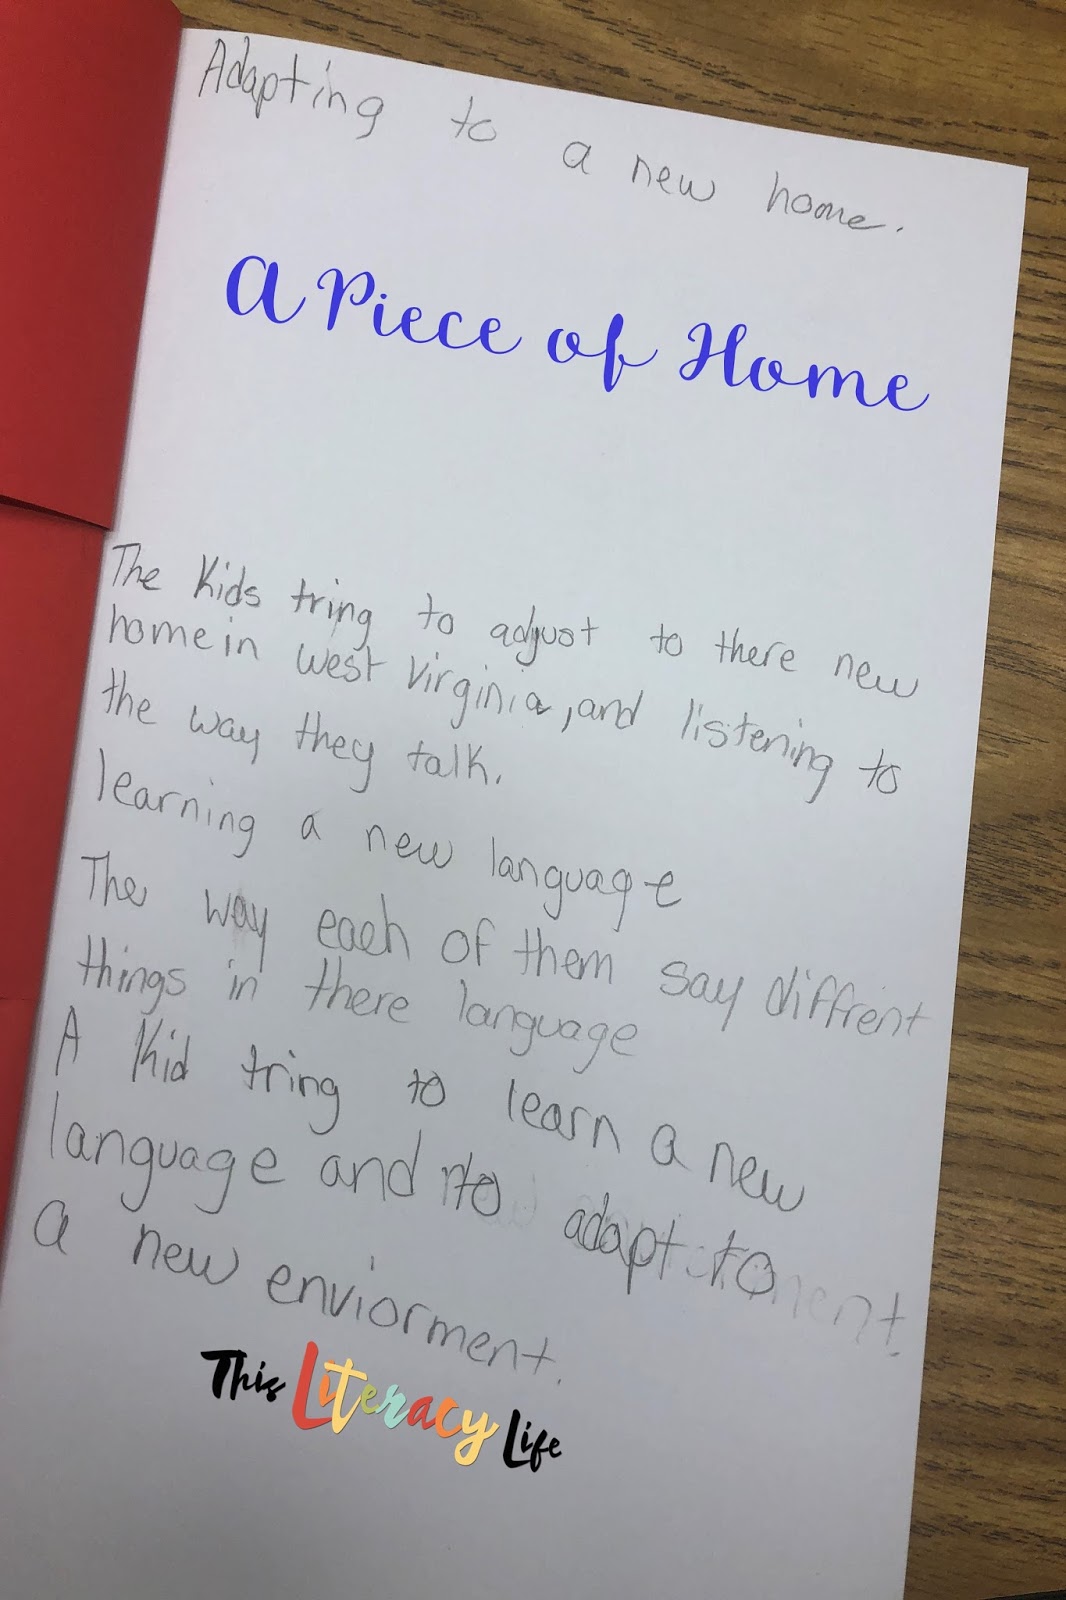 Adapting to a new home.
A Piece of Home
The Kids tring to adjust to there new
home in west virginia, and listening to
the way they talk.
learning a new language
The way each of them say diffrent
things in there language
A Kid tring to learn a new
language and to adapt to
a new enviorment.
This Literacy Life